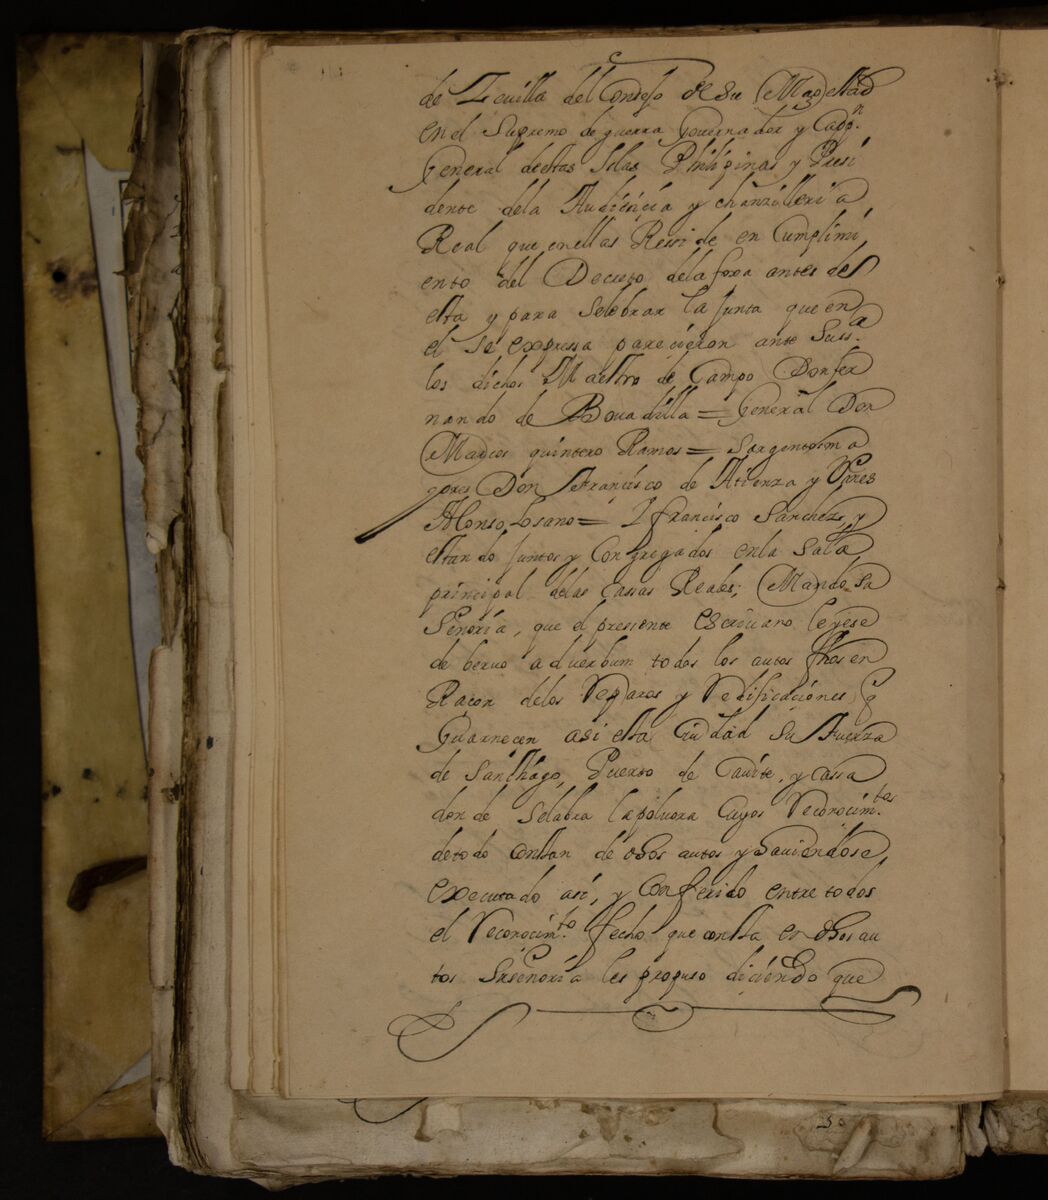 de Zeuilla del Consejo de Su Magestad
en el Supremo de guerra Gouernador y Capp.n
General destas Islas Philipinas y Presi
dente dela Audiencia y chanzilleria
Real que enellas Resside en Cumplimi
ento del Decreto dela foxa antes des
sta y para Selebrar la Junta que en
el se expressa parecieron ante Suss.a
los dichos Maestro de Campo Donfer
nando de Bouadilla = General Don
Marcos quintero Ramos = Sargentosma
yores Don Francisco de Atienza y
Alonso Losano = I francisco Sanches, y
estando Juntos y Congregados enla Sala
principal delas Cassas Reales; Mando Su
Señoria, que el presente escriuano leyese
de beruo aduerbum todos los autos fhos en
Raçon delos Reparos y Redificaciones q
Guarnecen asi esta Ciudad Su Fuerza
de Santhiago, Puerto de Cauite, y Cassa
donde Selabra la poluora Cuyos Reconocim.tos
detodo Constan de dhos autos y hauiendose,
executado asi, y Conferido entre todos
el Reconocim.to fecho que consta en dhos au
tos Suseñoria les propuso diciendo que